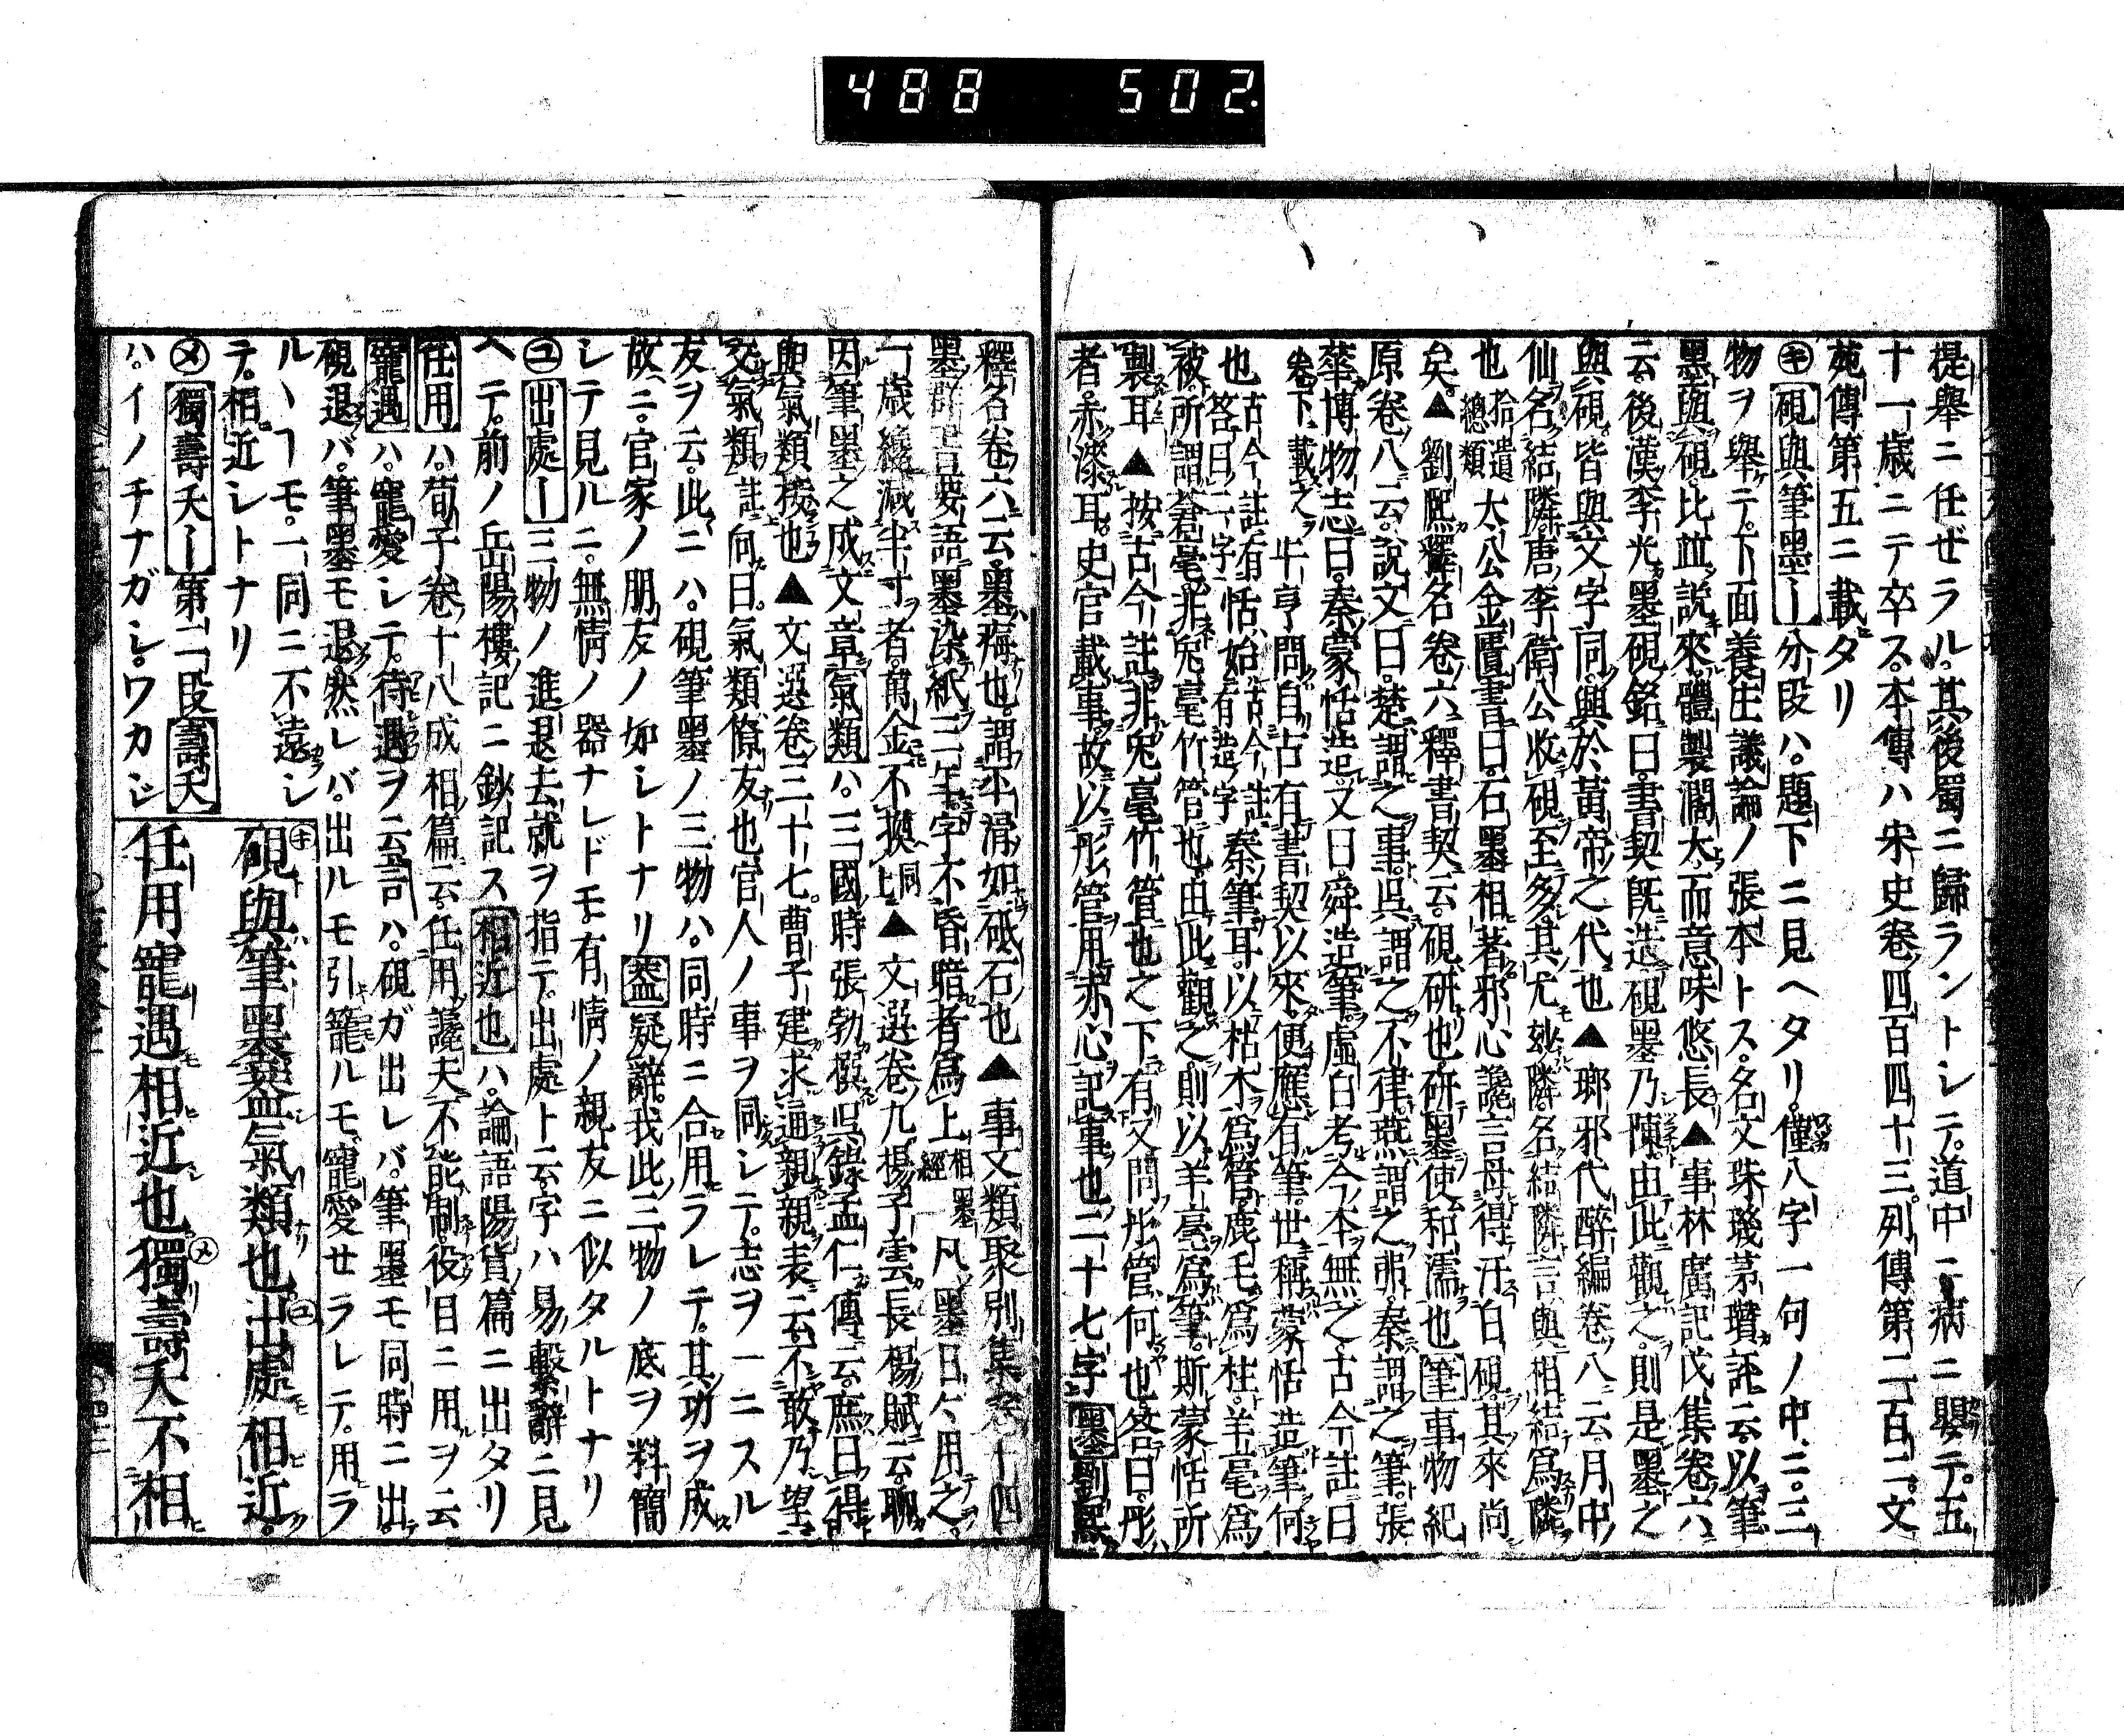 488 502.
提舉ニ任ゼラル。其後蜀ニ歸ラントシテ。道中ニ病ニ嬰テ。五
十一歳ニテ卒ス。本傳ハ宋史卷四百四十三。列傳第二百二。文
苑傳第五ニ載タリ
㋖硯與筆墨―分段ハ。題下ニ見ヘタリ。僅八字一句ノ中ニ。三
物ヲ舉ニテ。下面養生議論ノ張本トス。名文珠璣茅瓚評云。以筆
墨與硯。比竝說來。體製濶大。而意味悠長▲事林廣記戊集卷六
云。後漢李光墨硯銘曰。書契既造硯墨乃陳。由此觀之。則是墨之
與硯皆與文字同。興於黃帝之代也▲瑯邪代醉編卷八云。月中
仙名結隣。唐李衛公收硯至多。其尤妙隣。名結隣。言與相結爲隣
也拾遺總類大公金匱書曰。石墨相著。邪心讒言毋得汙白硯。其來尚
矣。▲劉熙釋名卷六釋書契云。硯研也。研墨使和濡也筆事物紀
原卷八云。說文曰。楚謂之事。吳謂之不律。燕謂之弗。秦謂之筆。張
華博物志曰。秦蒙恬造。又曰。舜造筆虛白考今本無之古今註曰
卷下載之牛亨問自古有書契以來。便應有筆。世稱蒙恬造筆何
也古今註有恬始古今註答曰二字有造字秦筆耳。以枯木爲管。鹿毛爲柱。羊毫爲
被。所謂蒼毫。非兔毫竹管也。由此觀之。則以羊毫爲筆。斯蒙恬所
製耳▲按古今註非兔毫竹管也之下有又問彤管何也。答曰。彤
者。赤漆耳。史官載事。故以彤管。用赤心記事也二十七字墨劉熙
釋名卷六云。墨痗也。謂不滑如砥石也▲事文類聚別集卷十四
墨群書要語墨染紙三年。字不昏暗者爲上相墨經凡墨日々用之。
一歳纔減半寸者。萬金不換同上▲文選卷九揚子雲長楊賦云。聊
因筆墨之成文章氣類ハ。三國時張勃撰吳錄孟仁傳云。庶曰得
與氣類接也▲文選卷三十七。曹子建求通親親表云。不敢乃望
交氣類註向曰。氣類僚友也官人ノ事ヲ同シテ。志ヲ一ニスル
友ヲ云。此ニハ。硯筆墨ノ三物ハ。同時ニ合用ラレテ。其功ヲ成
故ニ。官家ノ朋友ノ如シトナリ蓋疑辭。我此三物ノ底ヲ料簡
シテ見ルニ。無情ノ器ナレドモ。有情ノ親友ニ似タルトナリ
㋴出處―三物ノ進退去就ヲ指テ。出處ト云。字ハ易繫辭ニ見
ヘテ。前ノ岳陽樓記ニ鈔記ス相近也ハ。論語陽貨篇ニ出タリ
任用ハ。荀子卷十八成相篇云。任用讒夫不能制。役目ニ用ヲ云
寵遇ハ。寵愛シテ。待遇ヲ云言ハ。硯ガ出レバ。筆墨モ同時ニ出。
硯退バ。筆墨モ退然レバ。出ルモ引籠ルモ。寵愛セラレテ。用ラ
ルヽヿモ。一同ニ不遠シ
テ。相近シトナリ
㋱獨壽夭―第二段壽夭
ハ。イノチナガシ。ワカジ
硯與筆墨蓋氣類也出處相近。
任用寵遇相近也獨壽夭不相